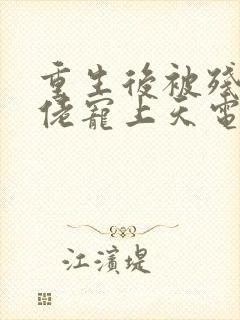 重生後被殘
佬寵上天電
江濱堤